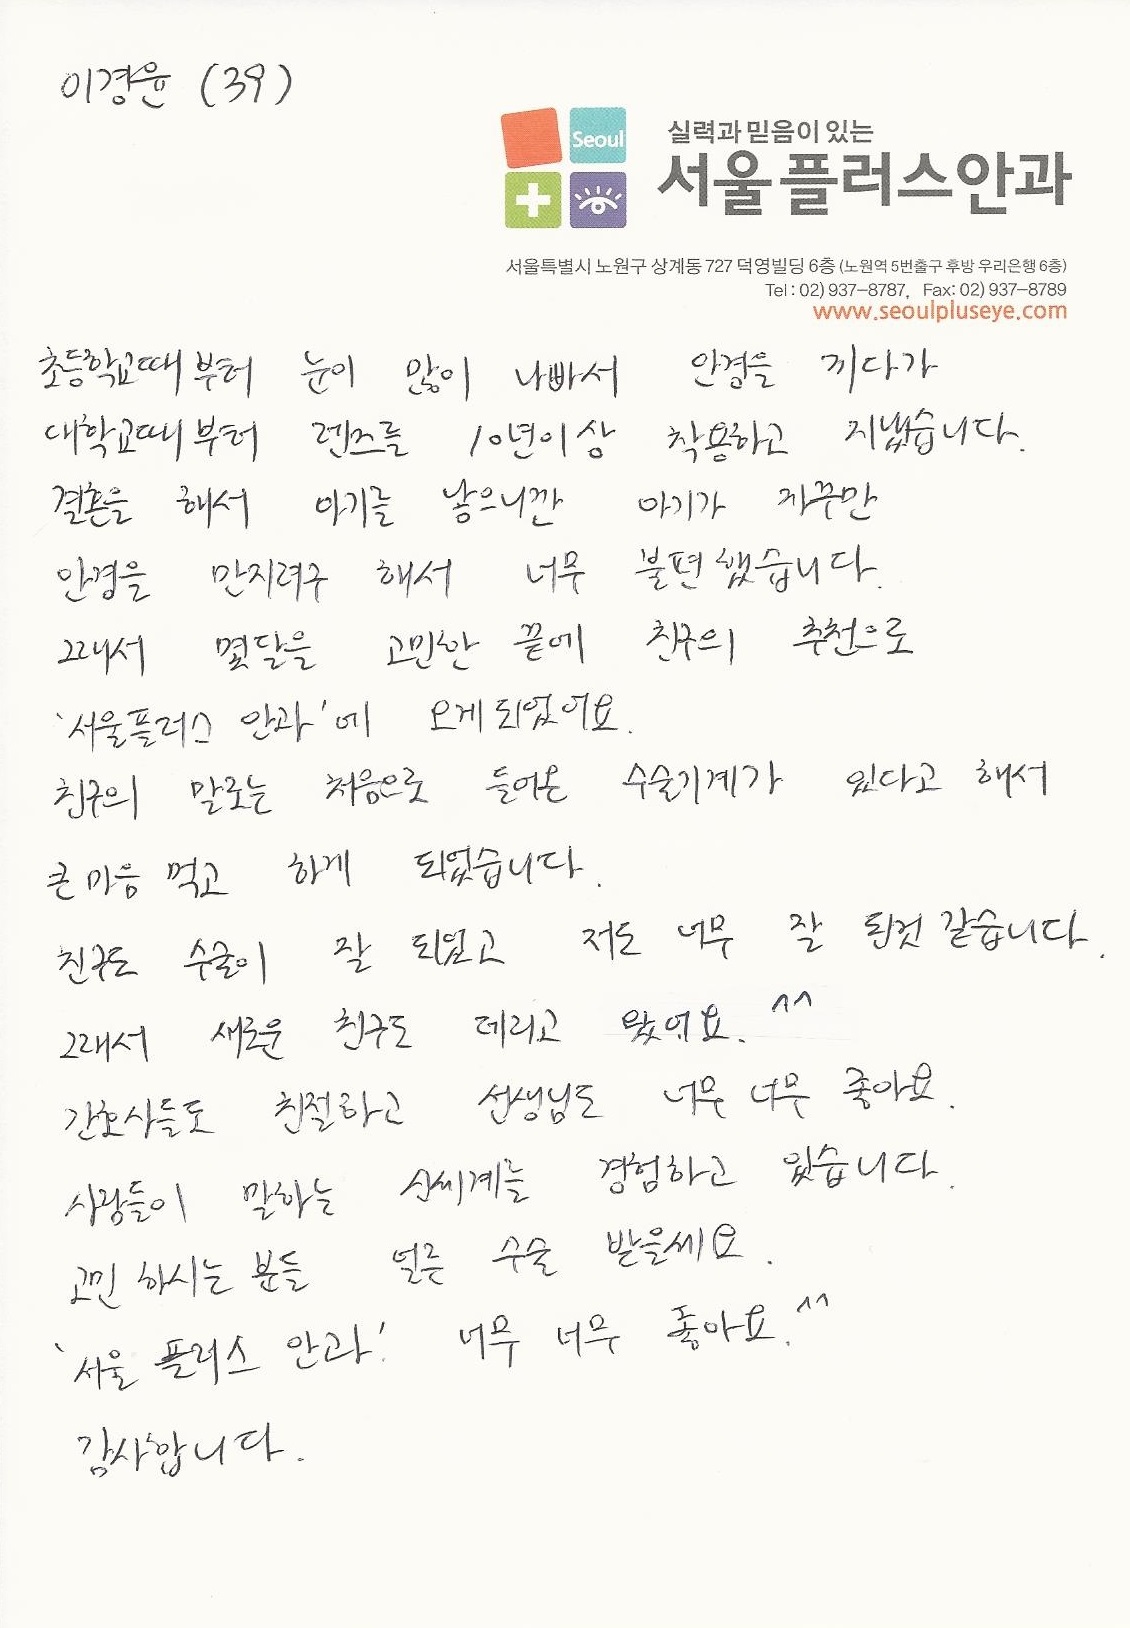 이경윤 (39)
Seoul
실력과 믿음이 있는
서울플러스안과
서울특별시 노원구 상계동 727 덕영빌딩 6층 (노원역 5번출구 후방 우리은행 6층)
Tel : 02) 937-8787, Fax: 02) 937-8789
www.seoulpluseye.com
초등학교때부터 눈이 많이 나빠서 안경을 끼다가
대학교때부터 렌즈를 10년이상 착용하고 지냈습니다.
결혼을 해서 아기를 낳으니깐 아기가 자꾸만
안경을 만지려구 해서 너무 불편했습니다.
그래서 몇달을 고민한 끝에 친구의 추천으로
'서울플러스 안과'에 오게되었어요.
친구의 말로는 처음으로 들어온 수술기계가 있다고 해서
큰마음 먹고 하게 되었습니다.
친구도 수술이 잘 되었고 저도 너무 잘 된것 같습니다.
그래서 새로운 친구도 데리고 왔어요. ^^
간호사들도 친절하고 선생님도 너무 너무 좋아요.
사람들이 말하는 신세계를 경험하고 있습니다.
고민 하시는 분들 얼른 수술 받을세요.
'서울 플러스 안과' 너무 너무 좋아요.^^
감사합니다.